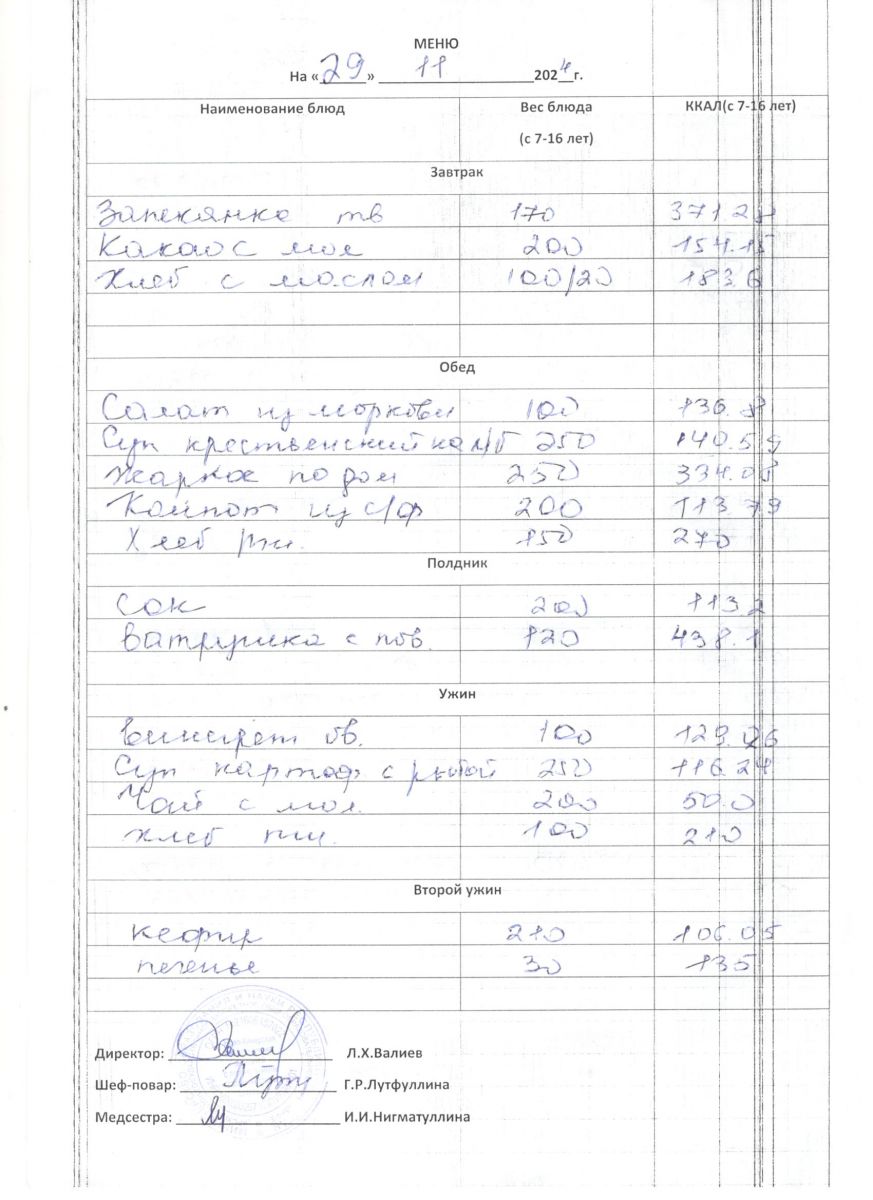 МЕНЮ
На «29» 11 2024 г.
Наименование блюд Вес блюда (с 7-16 лет) ККАЛ(с 7-16 лет)
Завтрак
Запеканка тв 170 371.2
Какао с мол 200 154.15
Хлеб с маслом 100/20 183.6
Обед
Салат из моркови 100 136.8
Суп крестьенский на м/б 250 140.59
Жаркое по дом 250 334.08
Компот из с/ф 200 113.79
Хлеб рж. 150 270
Полдник
Сок 200 113.2
Ватрушка с пов. 120 438.1
Ужин
Винегрет ов. 100 129.06
Суп картоф с рыбой 250 116.24
Чай с мол. 200 50.0
хлеб пш. 100 210
Второй ужин
кефир 210 106.05
печенье 30 135
Директор: Л.Х.Валиев
Шеф-повар: Г.Р.Лутфуллина
Медсестра: И.И.Нигматуллина